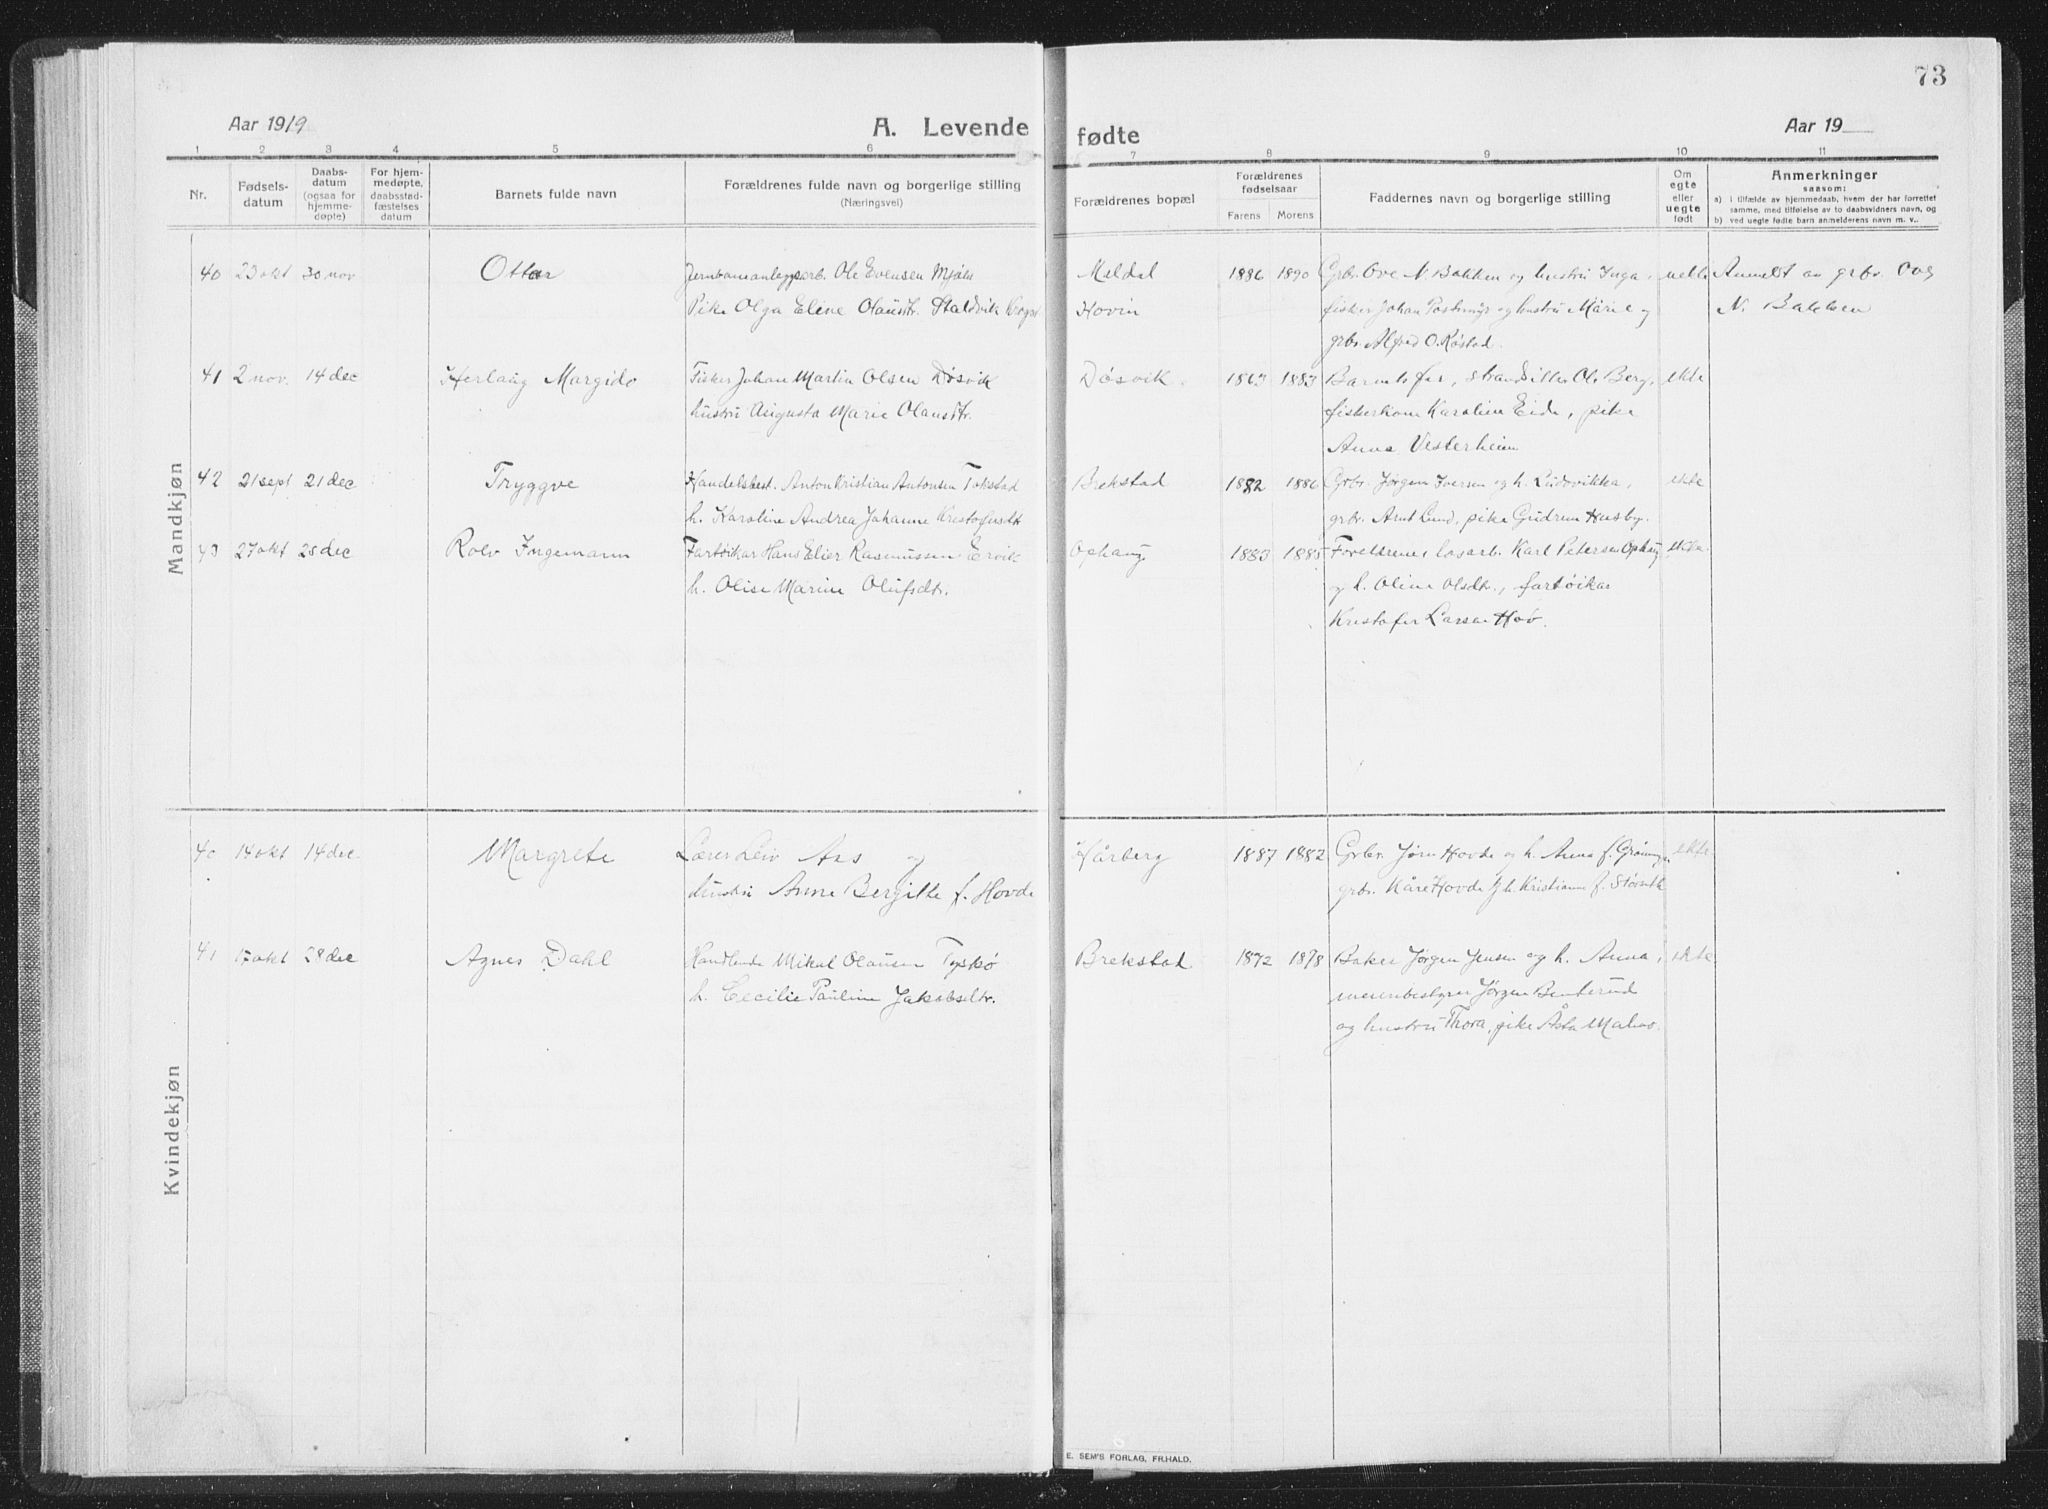 73
Aar 1919
A. Levende fødte
Aar 19
1 2 3 4 5 6 7 8 9 10 11
Nr.
Fødsels-
datum
Daabs-
datum
(ogsaa for
hjemme-
døpte)
For hjem-
medøpte,
daabsstad-
fæstelses
datum
Barnets fulde navn
Forældrenes fulde navn og borgerlige stilling
(Næringsvei)
Forældrenes bopæl
Forældrenes
fødselsaar
Farens Morens
Faddernes navn og borgerlige stilling
Om
egte
eller
uegte
født
Anmerkninger
saasom:
a) i tilfælde av hjemmedaab, hvem der har forrettet
samme, med tilføielse av to daabsvidners navn, og
b) ved uegte fødte barn anmelderens navn m. v..
Mandkjøn
40 23 okt 30 nov Ottar Jernbaneanlegsarb. Ole Evensen Mjøln Meldal 1886 1890 Grbr. Ove N. Bakken og hustru Inga, Anmeldt av grbr. Ove
Pike Olga Eline Olausdtr. Staldvik Hovin fisker Johan og hustru Marie og N. Bakken
grbr. Alfred O. Røstad.
41 2 nov. 14 dec Herlaug Margido Fisker Johan Martin Olsen Døsvik Døsvik. 1883 Barnets far, strandsitter Ole Berg, ekte
hustru Augusta Marie Olausdtr. fiskerkone Karoline Eide, pike
Anna Vesterheim
42 21 sept 21 dec Tryggve Handelsbest. Anton Kristian Antonsen Tokstad Brekstad 1882 1886 Grbr. Jørgen Iversen og h. Ludovikka, ekte
h. Karoline Andrea Johanne Kristofersdtr grbr. Arnt Lund, pike Gudrun Husby.
43 27 okt 28 dec Rolv Ingemann Fartøikar Hans Elier Rasmussen Ervik Ophaug 1883 1885 Foreldrene, løsarb. Karl Petersen Ophaug ekte
h. Olise Marine Olufsdtr. og h. Oline Olsdtr., fartøikar
Kristofer Larsen Hov.
Kvindekjøn
40 14 okt 14 dec. Margrete Lærer Leiv Aas og Hårberg 1887 1882 Grbr. Jørn Hovde og h. Anna f. Grønningen ekte
hustru Anne Bergitte f. Hovde grbr. Kåre Hovde og h. Kristianne f. Størseth
41 17 okt 28 dec Agnes Dahl Handlende Mikal Olausen Tyskø Brekstad 1872 1878 Baker Jørgen Jensen og h. Anna, ekte
h. Cecilie Pauline Jakobsdtr. meieribestyrer Jørgen Benterud
og hustru Thora, pike Åsta Malmo.
E. SEM'S FORLAG, FR.HALD.